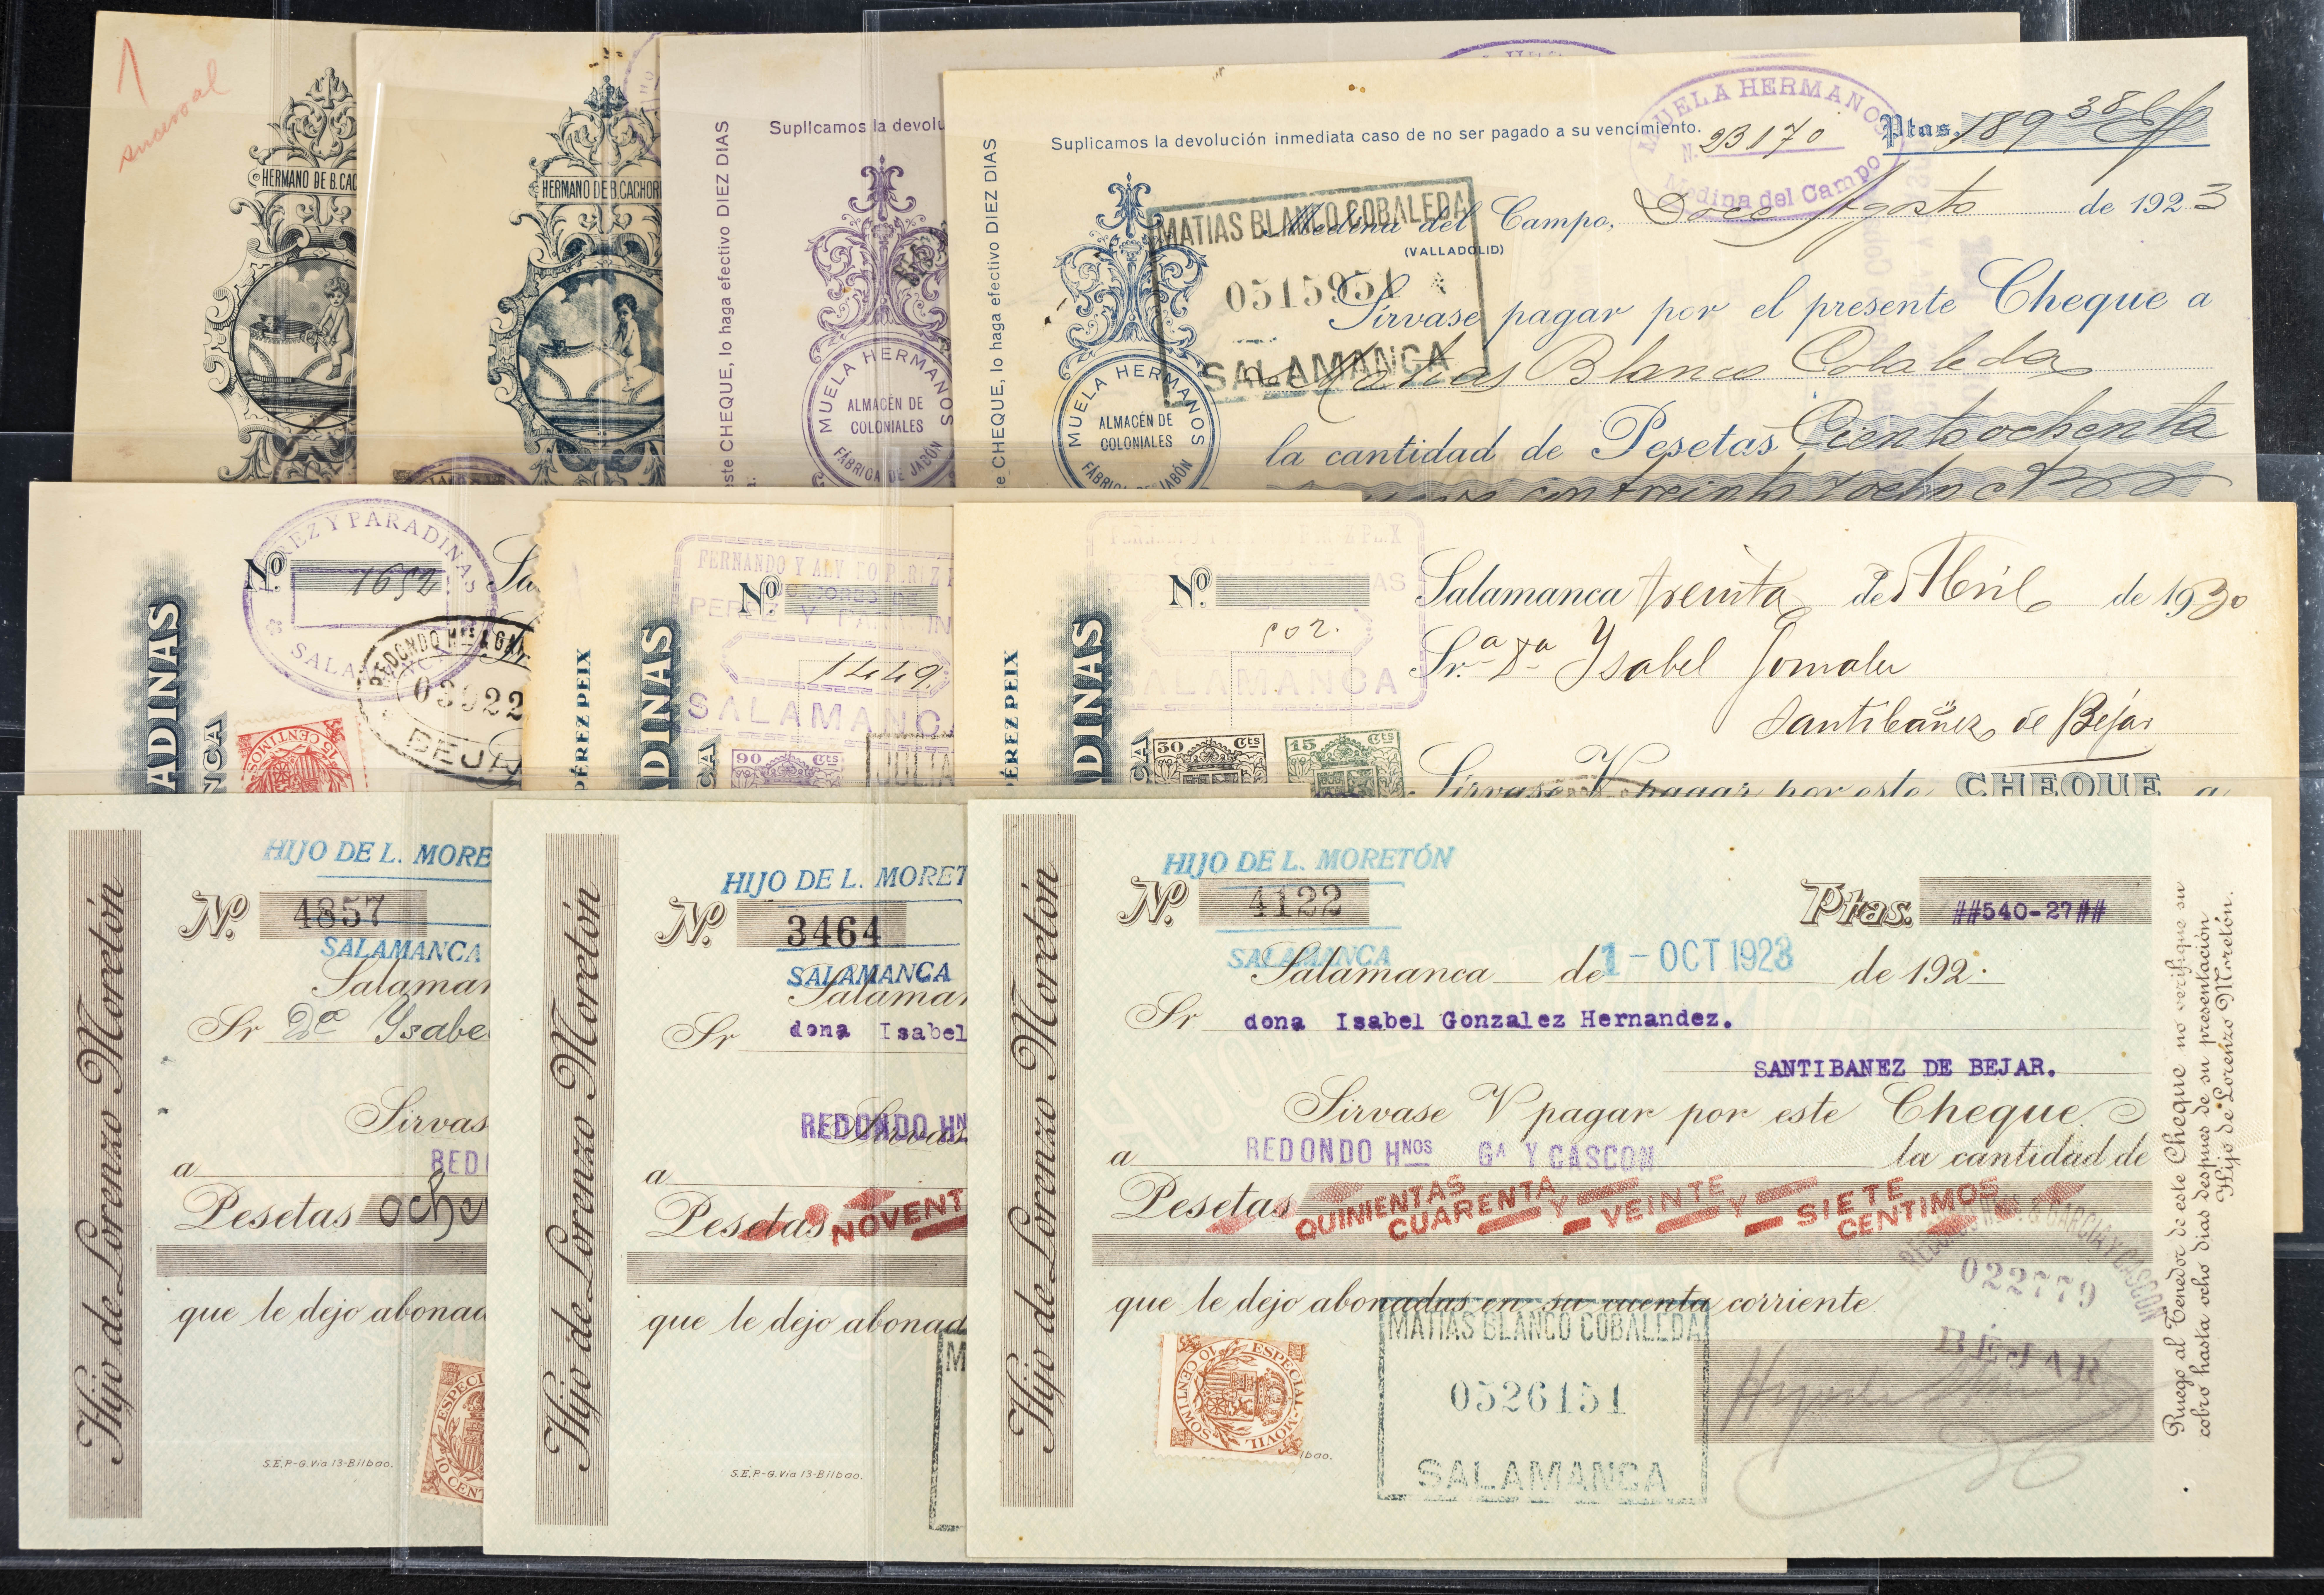 1
sucursal
HERMANO DE B. CAC
HERMANO DE B. CACHOR
este CHEQUE, lo haga efectivo DIEZ DIAS
Suplicamos la devolu
MUELA HERMANOS
ALMACÉN DE
COLONIALES
FÁBRICA DE JABÓN
CHEQUE, lo haga efectivo DIEZ DIAS
Suplicamos la devolución inmediata caso de no ser pagado a su vencimiento.
MUELA HERMANOS
N. 23170
Medina del Campo
Ptas. 189 38
Medina del Campo, Doce Agosto de 1923
(VALLADOLID)
MATIAS BLANCO COBALEDA
0515951
SALAMANCA
Sírvase pagar por el presente Cheque a
Matias Blanco Cobaleda
la cantidad de Pesetas Ciento ochenta
MUELA HERMANOS
ALMACÉN DE
COLONIALES
FÁBRICA DE JABÓN
ADINAS
NCA
PEREZ Y PARADINAS
SALAMANCA
Nº 1652 Sa
REDONDO
03922
BEJA
15 CENTIMOS
PÉREZ PEIX
ADINAS
CA
FERNANDO Y
Nº
PEREZ Y
1449
SALAMANCA
90 Cts
JULIA
PÉREZ PEIX
DINAS
CA
Nº
502.
SALAMANCA
50 Cts
15 Cts
Salamanca treinta de Abril de 1930
Sr.a Da Ysabel
Santibañez de Bejar
Sírvase V pagar por este CHEQUE a
Hijo de Lorenzo Moretón
HIJO DE L. MORE
Nº 4857
SALAMANCA
Salaman
Sr Da Ysabe
Sirvas
a RED
Pesetas oche
que le dejo abonad
ESPECI
10 CENT
S.E.P.-G. Vía 13-Bilbao.
Hijo de Lorenzo Moretón
HIJO DE L. MORET
Nº 3464
SALAMANCA
Salaman
Sr dona Isabel
Sirvas
REDONDO HN
a
Pesetas NOVENT
que le dejo abonad
M
S.E.P.-G. Vía 13-Bilbao.
Hijo de Lorenzo Moretón
HIJO DE L. MORETÓN
Nº 4122
SALAMANCA
Ptas. ##540-27##
Salamanca de 1-OCT 1923 de 192
Sr dona Isabel Gonzalez Hernandez.
SANTIBANEZ DE BEJAR.
Sirvase V pagar por este Cheque
a REDONDO HNOS GA Y CASCON la cantidad de
Pesetas QUINIENTAS CUARENTA Y VEINTE Y SIETE CENTIMOS
que le dejo abonadas en su cuenta corriente
GARCIA Y CASCON
022779
BÉJAR
ESPECIAL MOVIL
10 CENTIMOS
bao.
MATIAS BLANCO COBALEDA
0526151
SALAMANCA
Ruego al Tenedor de este Cheque no verifique su
cobro hasta ocho dias despues de su presentación
Hijo de Lorenzo Moretón.